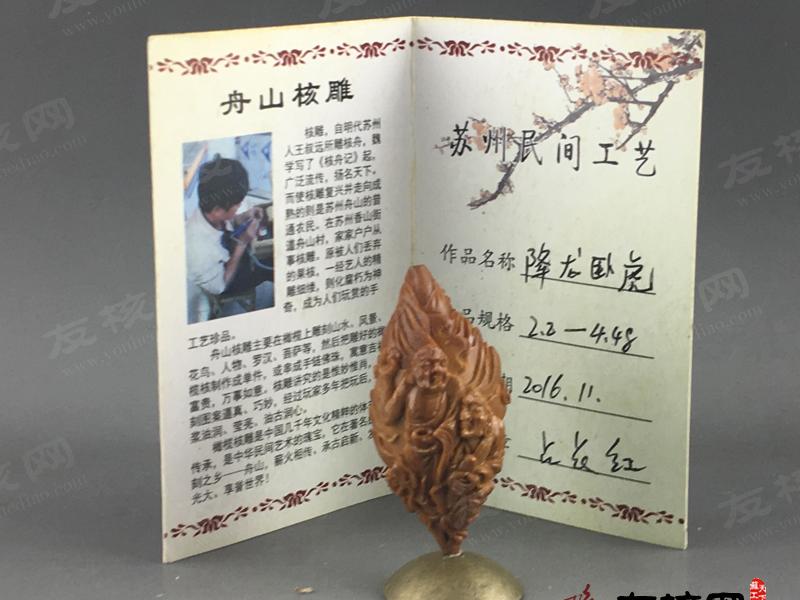 舟山核雕
核雕，自明代苏州
人王叔远所雕核舟，魏
学写了《核舟记》起，
广泛流传，扬名天下，
而使核雕复兴并走向成
熟的则是苏州舟山的普
通农民。在苏州香山街
道舟山村，家家户户从
事核雕。原被人们丢弃
的果核，一经艺人的精
雕细缕，则化腐朽为神
奇，成为人们玩赏的手
工艺珍品。
舟山核雕主要在橄榄上雕刻山水、风景、
花鸟、人物、罗汉、菩萨等，然后把雕好的橄
榄核制作成单件，或串成手链佛珠，寓意吉
富贵，万事如意。核雕讲究的是惟妙惟肖，
刻图案逼真、巧妙，经过玩家多年把玩后，
浆油润、莹亮，油古润心。
橄榄核雕是中国几千年文化精粹的体
传承，是中华民间艺术的瑰宝，它在著名
刻之乡——舟山，薪火相传，承古启新，发
光大，享誉世界！
苏州民间工艺
作品名称 降龙卧虎
品规格 2.2—4.48
期 2016.11.
友核网